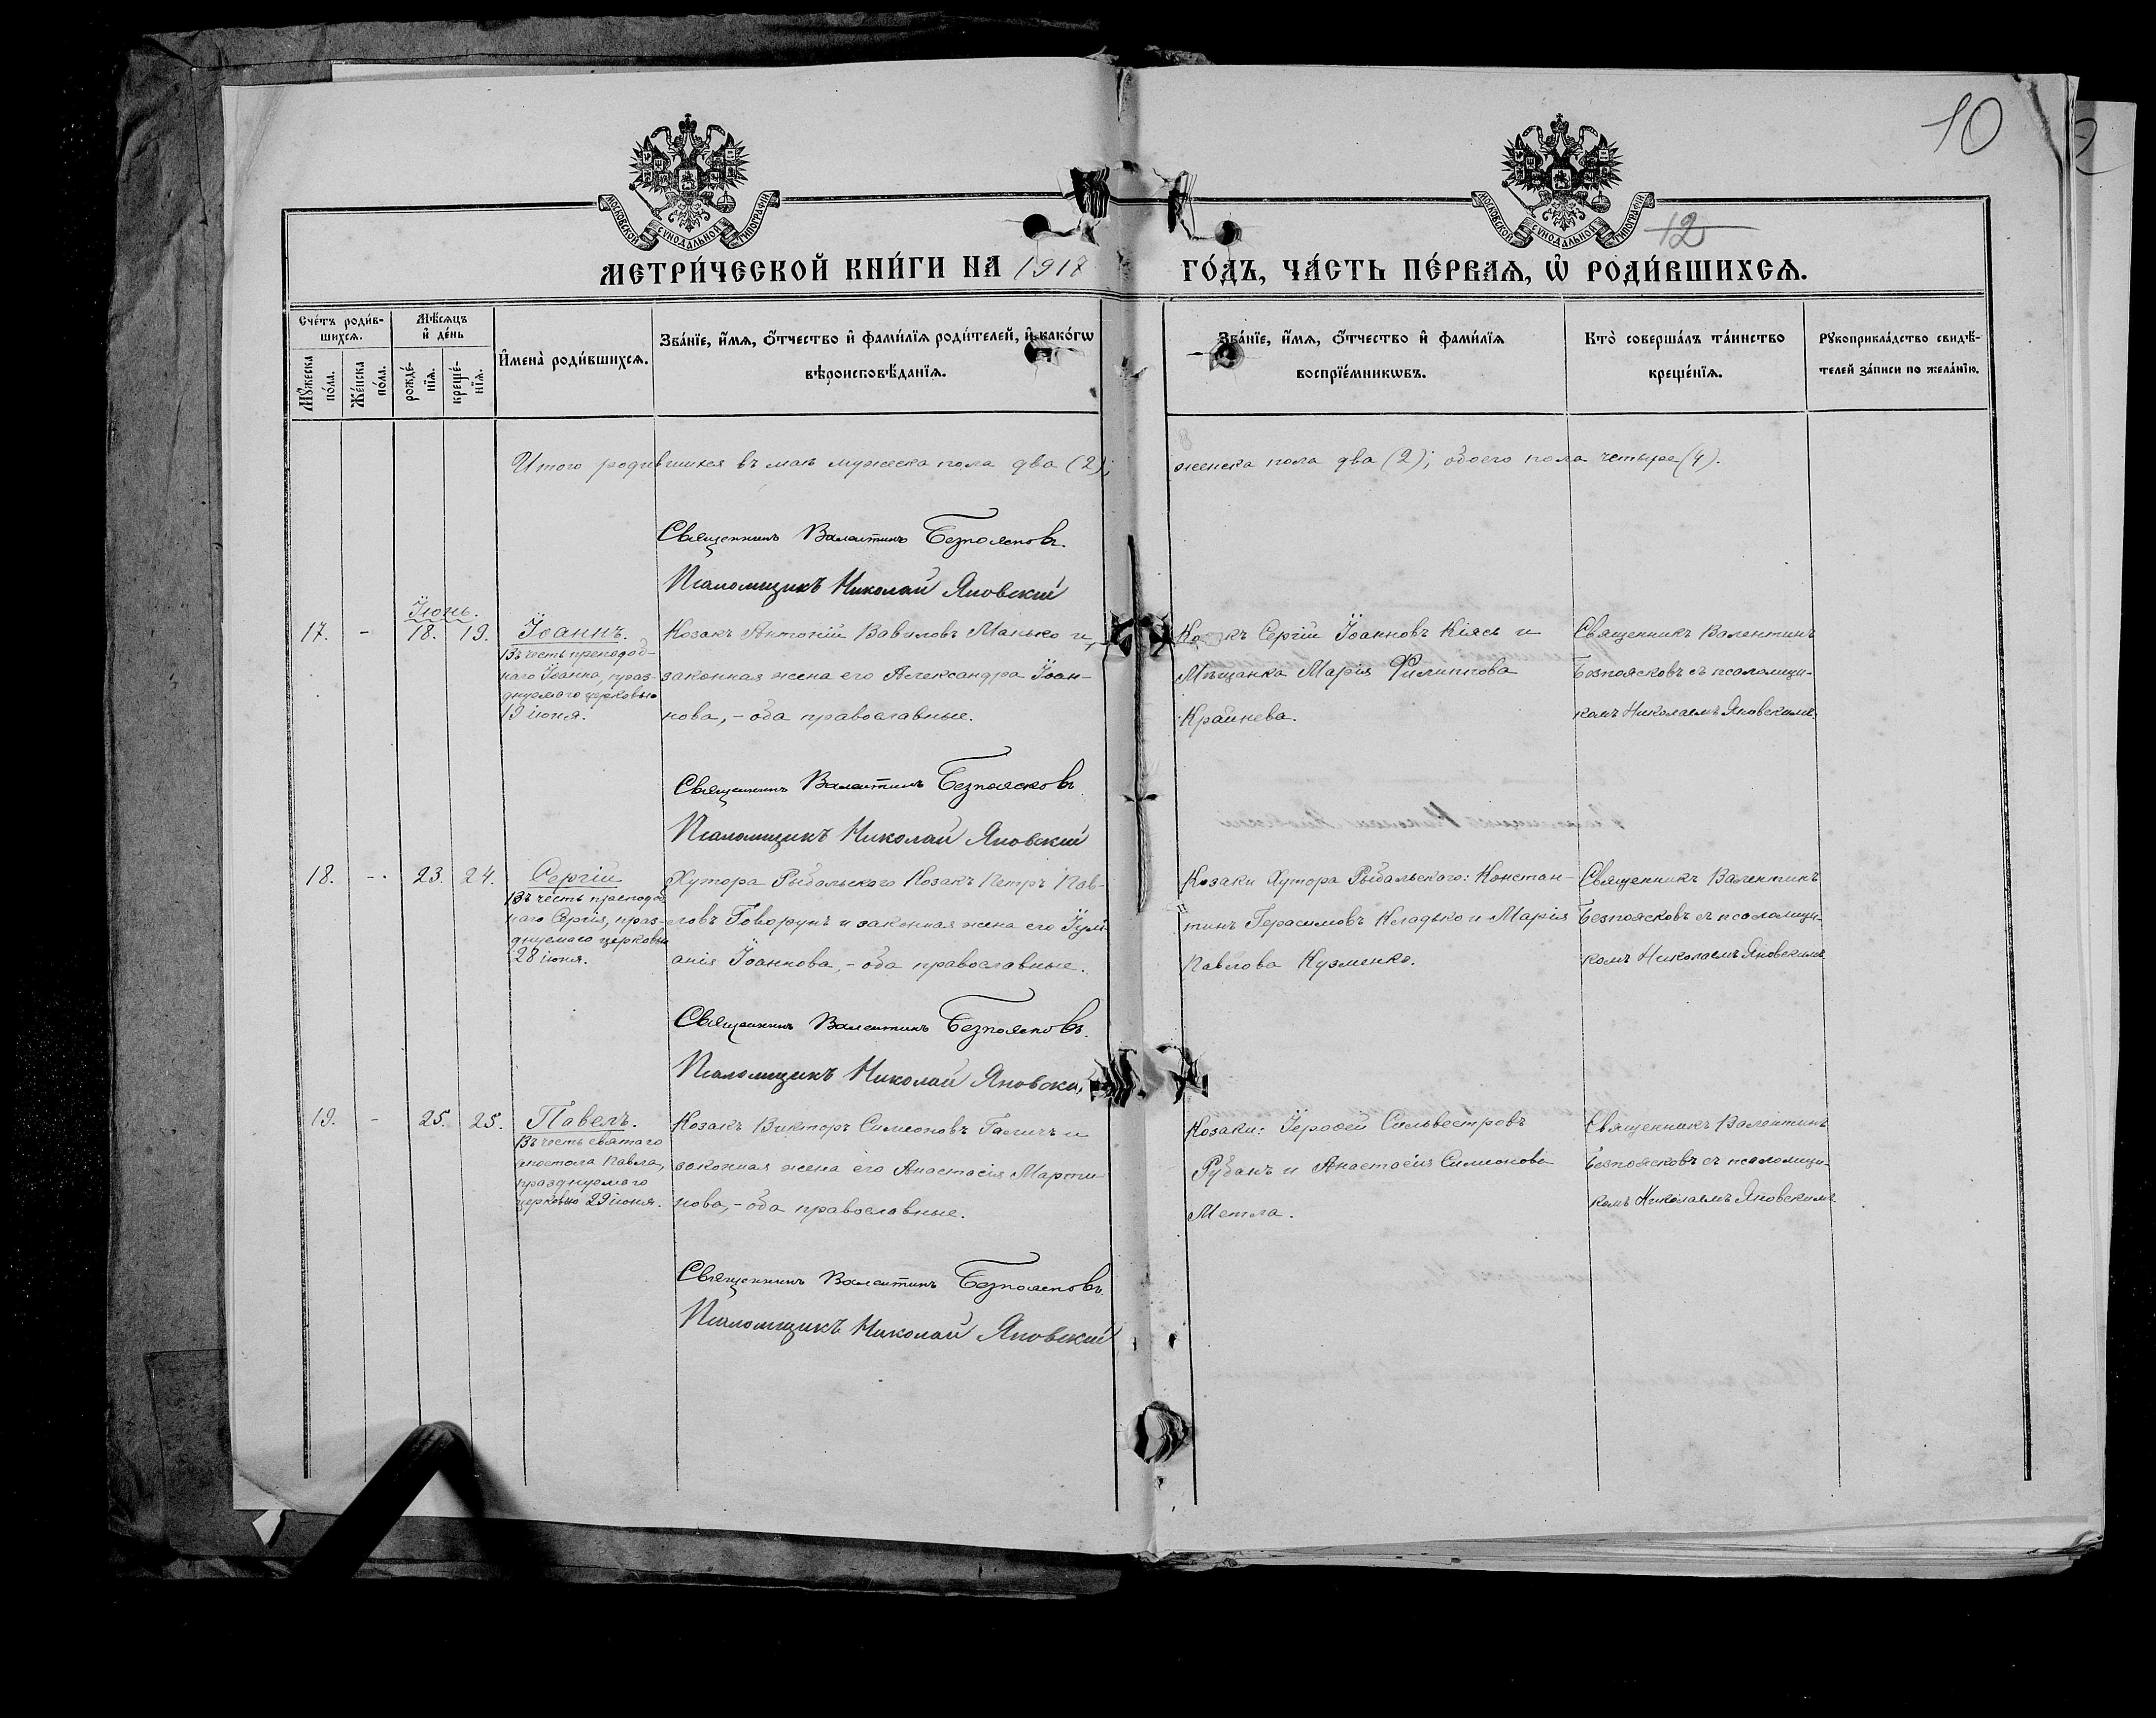 10
МОСКОВСКОЙ СУНОДАЛЬНОЙ ТИПОГРАФІИ
МОСКОВСКОЙ СУНОДАЛЬНОЙ ТИПОГРАФІИ
12
МЕТРИ́ЧЕСКОЙ КНИ́ГИ НА 1917 ГО́ДЪ, ЧА́СТЬ ПЕ́РВАЯ, Ѡ҆ РОДИ́ВШИХСЯ.
Сче́тъ роди́в-
шихся.
Мꙋ́жеска по́ла.
Же́нска по́ла.
Мѣ́сяцъ
и҆ де́нь
рожде́-
нїя.
креще́-
нїя.
И҆мена̀ роди́вшихся.
Зва́нїе, и҆́мя, ѻ҆́тчество и҆ фами́лїя роди́телей, и҆ како́гѡ
вѣроисповѣ́данїя.
Зва́нїе, и҆́мя, ѻ҆́тчество и҆ фами́лїя
воспрїе́мникѡвъ.
Кто̀ соверша́лъ та́инство
креще́нїя.
Рꙋкоприкла́дство свидѣ́-
телей за́писи по жела́нїю.
Итого родившихся въ маѣ мужеска пола два (2); женска пола два (2); обоего пола четыре (4).
Священникъ Валентинъ Безпоясковъ.
Псаломщикъ Николай Яновскій
Іюнь.
17. - 18. 19. Іоаннъ.
Въ честь преподоб-
наго Іоанна, праз-
днуемаго церковью
19 іюня.
Козакъ Антоній Вавиловъ Манько и
законная жена его Александра Іоан-
нова, - оба православные.
Козакъ Сергій Іоанновъ Кіясь и
Мѣщанка Марія Филиппова
Крайнева.
Священникъ Валентинъ
Безпоясковъ съ псаломщи-
комъ Николаемъ Яновскимъ.
Священникъ Валентинъ Безпоясковъ.
Псаломщикъ Николай Яновскій
18. - 23. 24. Сергій
Въ честь преподоб
наго Сергія, праз-
днуемаго церковью
28 іюня.
Хутора Рыбальскаго Козакъ Петръ Пав-
ловъ Говорунъ и законная жена его Іулі
анія Іоаннова, - оба православные.
Козаки Хутора Рыбальскаго: Констан-
тинъ Герасимовъ Кладько и Марія
Павлова Кузменко.
Священникъ Валентинъ
Безпоясковъ съ псаломщи-
комъ Николаемъ Яновскимъ.
Священникъ Валентинъ Безпоясковъ.
Псаломщикъ Николай Яновскій
19. - 25. 25. Павелъ.
Въ честь святаго
апостола Павла,
празднуемаго
церковью 29 іюня.
Козакъ Викторъ Симеоновъ Галичъ и
законная жена его Анастасія Марти-
нова, - оба православные.
Козаки: Іерофей Сильвестровъ
Рубанъ и Анастасія Симеонова
Метла.
Священникъ Валентинъ
Безпоясковъ съ псаломщи-
комъ Николаемъ Яновскимъ.
Священникъ Валентинъ Безпоясковъ.
Псаломщикъ Николай Яновскій